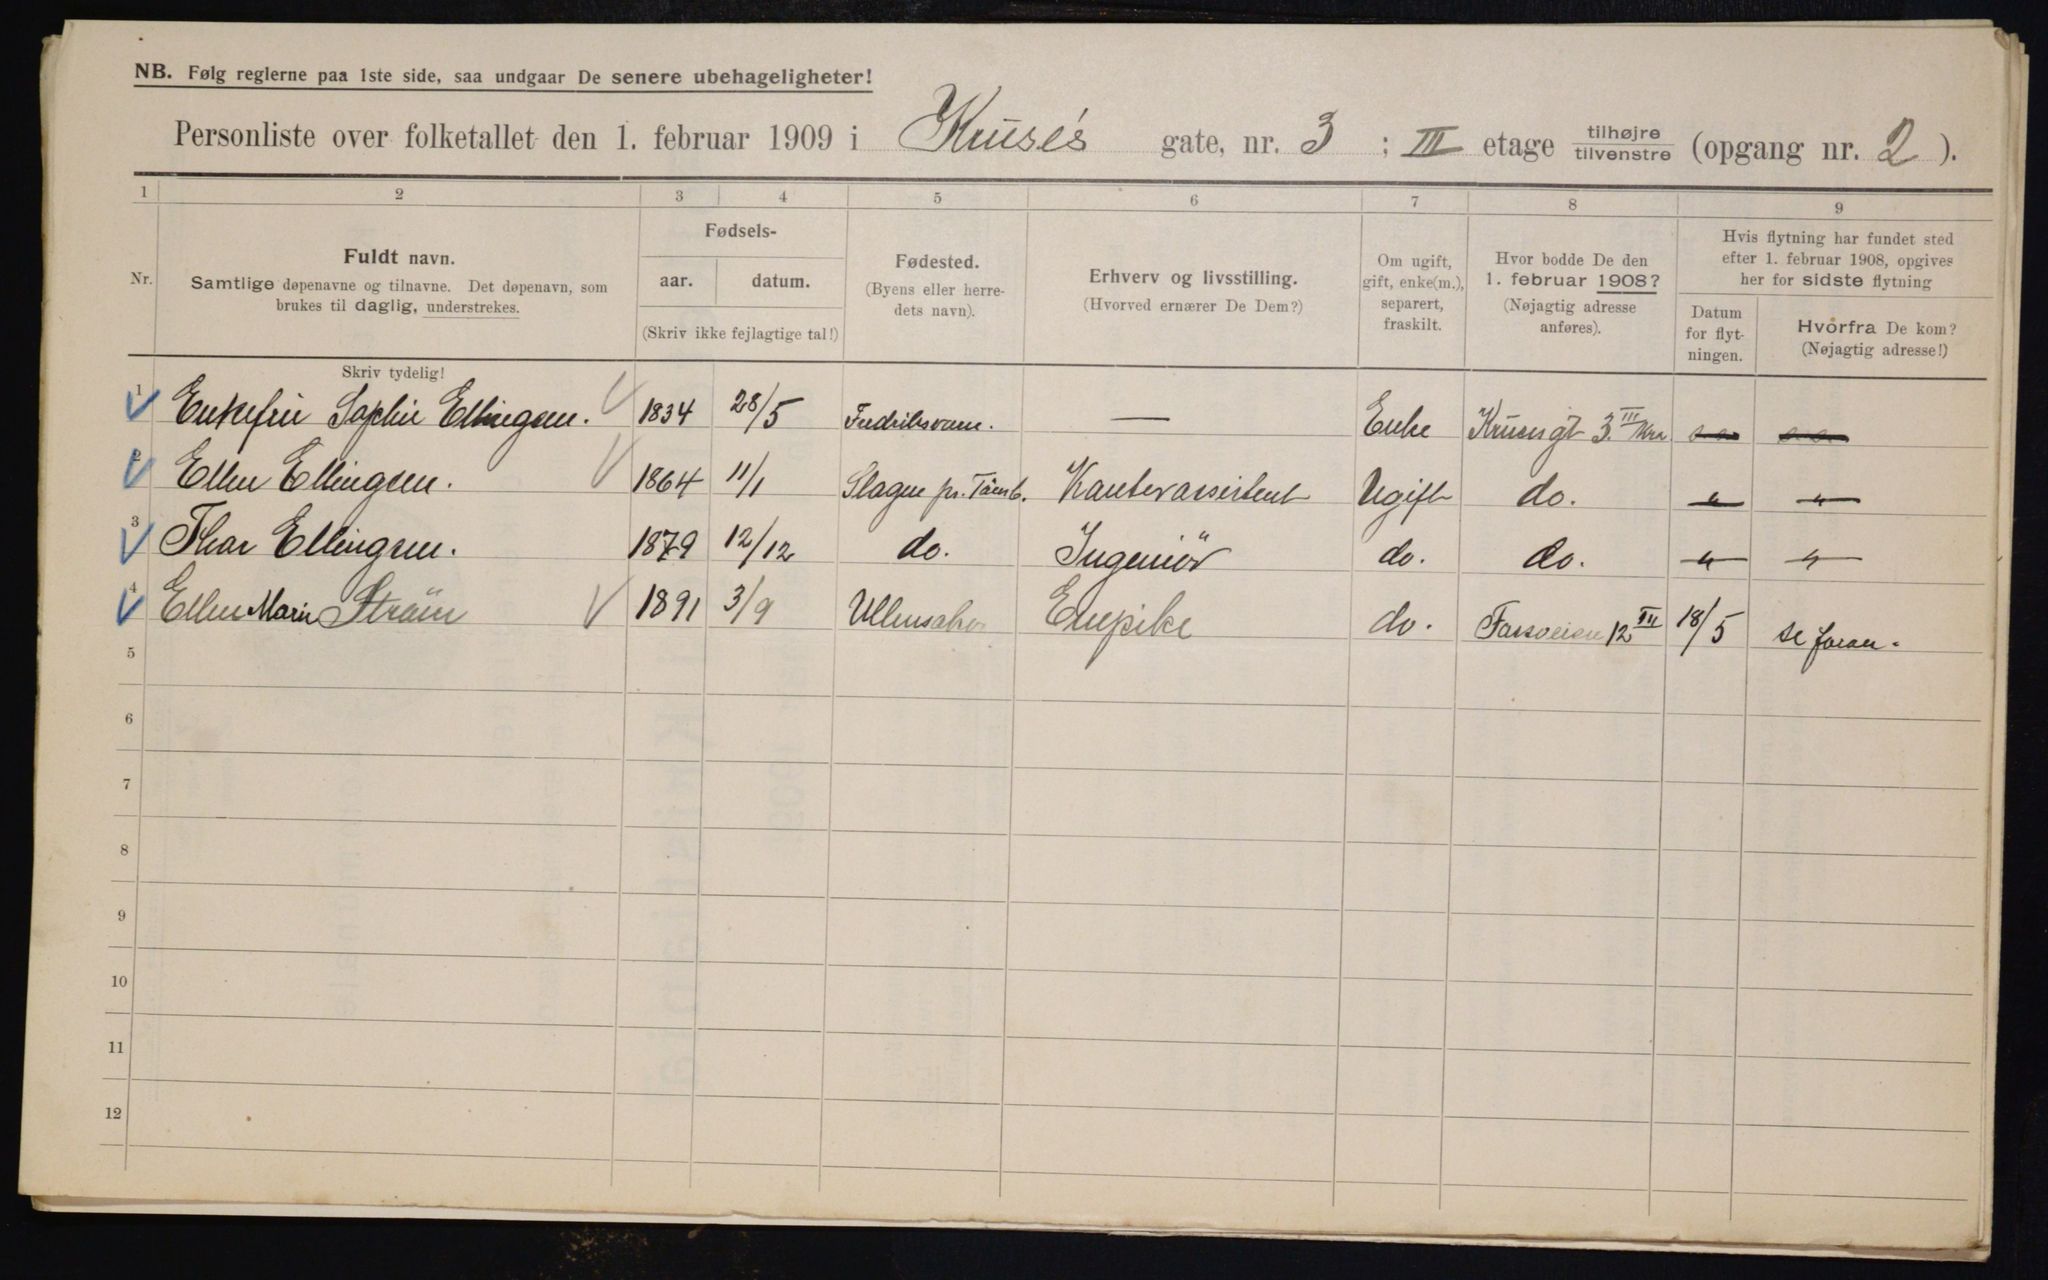 NB. Følg reglerne paa 1ste side, saa undgaar De senere ubehageligheter!
Personliste over folketallet den 1. februar 1909 i Kruses gate, nr. 3 ; III etage tilhøjre tilvenstre (opgang nr. 2 ).
1 2 3 4 5 6 7 8 9
Nr.
Fuldt navn.
Samtlige døpenavne og tilnavne. Det døpenavn, som
brukes til daglig, understrekes.
Skriv tydelig!
Fødsels-
aar. datum.
(Skriv ikke fejlagtige tal!)
Fødested.
(Byens eller herre-
dets navn).
Erhverv og livsstilling.
(Hvorved ernærer De Dem?)
Om ugift,
gift, enke(m.),
separert,
fraskilt.
Hvor bodde De den
1. februar 1908?
(Nøjagtig adresse
anføres).
Hvis flytning har fundet sted
efter 1. februar 1908, opgives
her for sidste flytning
Datum
for flyt-
ningen.
Hvorfra De kom?
(Nøjagtig adresse!)
1 Enkefru Sophie Ellingsen. 1834 28/5 Fredriksværn. — Enke Krusesgt 3. III Kra
2 Ellen Ellingsen. 1864 11/1 Slagen pr. Tönsb. Kontorassistent Ugift do. " "
3 Thor Ellingsen. 1879 12/12 do. Ingeniör do. do. " "
4 Ellen Marie Ström 1891 3/9 Ullensaker Enepike do. 12 III 18/5 se foran.
5
6
7
8
9
10
11
12